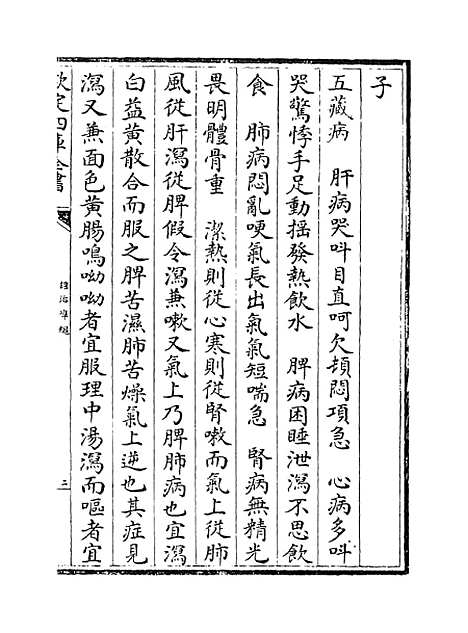 子
五藏病　肝病哭叫目直呵欠頓悶項急　心病多叫
哭驚悸手足動揺發熱飲水　脾病困睡泄瀉不思飲
食　肺病悶亂哽氣長出氣氣短喘急　腎病無精光
畏明體骨重　潔熱則從心寒則從腎嗽而氣上從肺
風從肝瀉從脾假令瀉兼嗽又氣上乃脾肺病也宜瀉
白益黄散合而服之脾苦濕肺苦燥氣上逆也其症見
瀉又兼面色黄腸鳴呦呦者宜服理中湯瀉而嘔者宜
欽定四庫全書
證治準繩
三